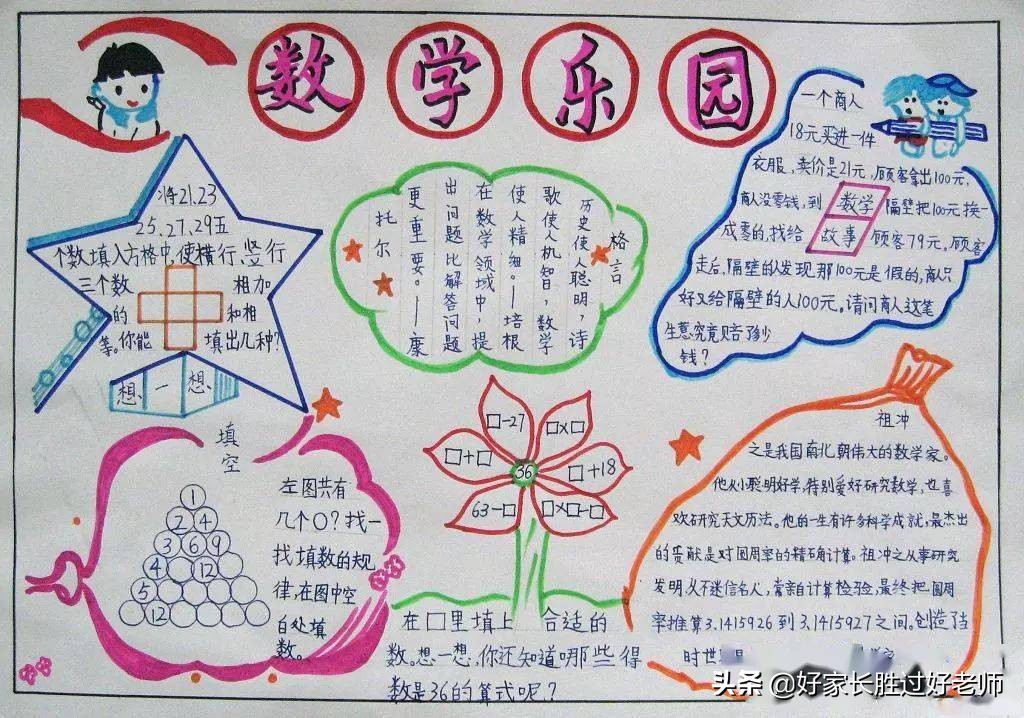 数学乐园
将21.23
25.27.29五
个数填入方格中,使横行,竖行
三个数 相加
的 和相
等。你能 填出几种?
想一想
格言
历史使人聪明，诗
歌使人机智，数学
使人精细。—培根
在数学领域中，提
出问题比解答问题
更重要。—康
托尔
一个商人
18元买进一件
衣服,卖价是21元,顾客拿出100元,
商人没零钱,到 隔壁把100元换一
数学
成零的,找给 顾客79元,顾客
故事
走后,隔壁的人发现那100元是假的,商人只
好又给隔壁的人100元。请问商人这笔
生意究竟赔了多少
钱?
填空
1
2 4
3 6 9
4 12
5
12
左图共有
几个○?找一
找填数的规
律,在图中空
白处填
数。
□-27
□x□
□+□
36
□+18
63-□
□x□-□
在□里填上 合适的
数。想一想,你还知道哪些得
数是36的算式呢?
祖冲
之是我国南北朝伟大的数学家。
他从小聪明好学,特别爱好研究数学,也喜
欢研究天文历法。他的一生有许多科学成就,最杰出
的贡献是对圆周率的精确计算。祖冲之从事研究
发明,从不迷信名人,常亲自计算检验,最终把圆周
率推算3.1415926到3.1415927之间。创造了当
时世
头条 @好家长胜过好老师